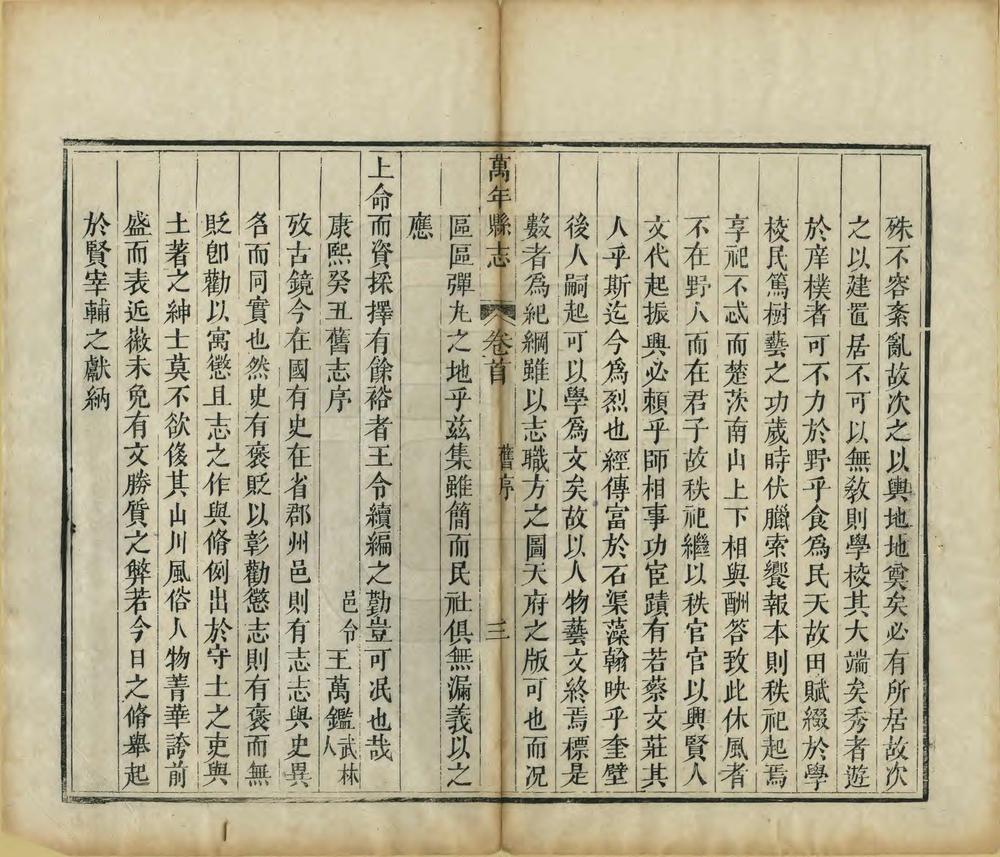 殊不容紊亂故次之以輿地地奠矣必有所居故次
之以建置居不可以無敎則學校其大端矣秀者遊
於庠樸者可不力於野乎食爲民天故田賦綴於學
校民篤樹藝之功歲時伏臘索饗報本則秩祀起焉
享祀不忒而楚茨南山上下相與酬答致此休風者
不在野人而在君子故秩祀繼以秩官官以興賢人
文代起振興必賴乎師相事功宦蹟有若蔡文莊其
人乎斯迄今爲烈也經傳富於石渠藻翰映乎奎壁
後人嗣起可以學爲文矣故以人物藝文終焉標是
數者爲紀綱雖以志職方之圖天府之版可也而况
萬年縣志 卷首 舊序 三
區區彈丸之地乎茲集雖簡而民社俱無漏義以之
應
上命而資採擇有餘裕者王令續編之勤豈可泯也哉
康熙癸丑舊志序
邑令王萬鑑武林人
攷古鏡今在國有史在省郡州邑則有志志與史異
名而同實也然史有褒貶以彰勸懲志則有褒而無
貶卽勸以寓懲且志之作與脩例出於守土之吏與
土著之紳士莫不欲侈其山川風俗人物菁華誇前
盛而表近徽未免有文勝質之弊若今日之脩舉起
於賢宰輔之獻納